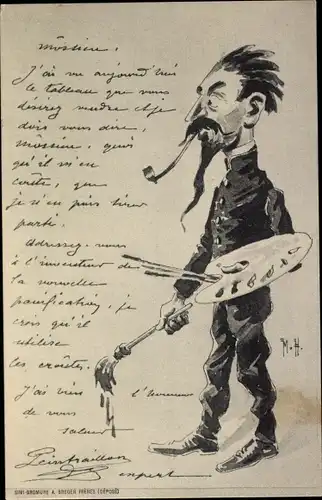 Môssieu,
J'ai vu aujourd'hui
le tableau que vous
désirez vendre et je
dois vous dire,
môssieu, quoi
qu'il m'en
coûte, que
je n'en puis tirer
parti.
Adressez-vous
à l'inventeur de
la nouvelle
panification, je
crois qu'il
utilise
les croûtes.
J'ai bien l'honneur
de vous
saluer
Peintraillon
expert
M.H.
SIMI-BROMURE A. BREGER FRÈRES (DÉPOSÉ)